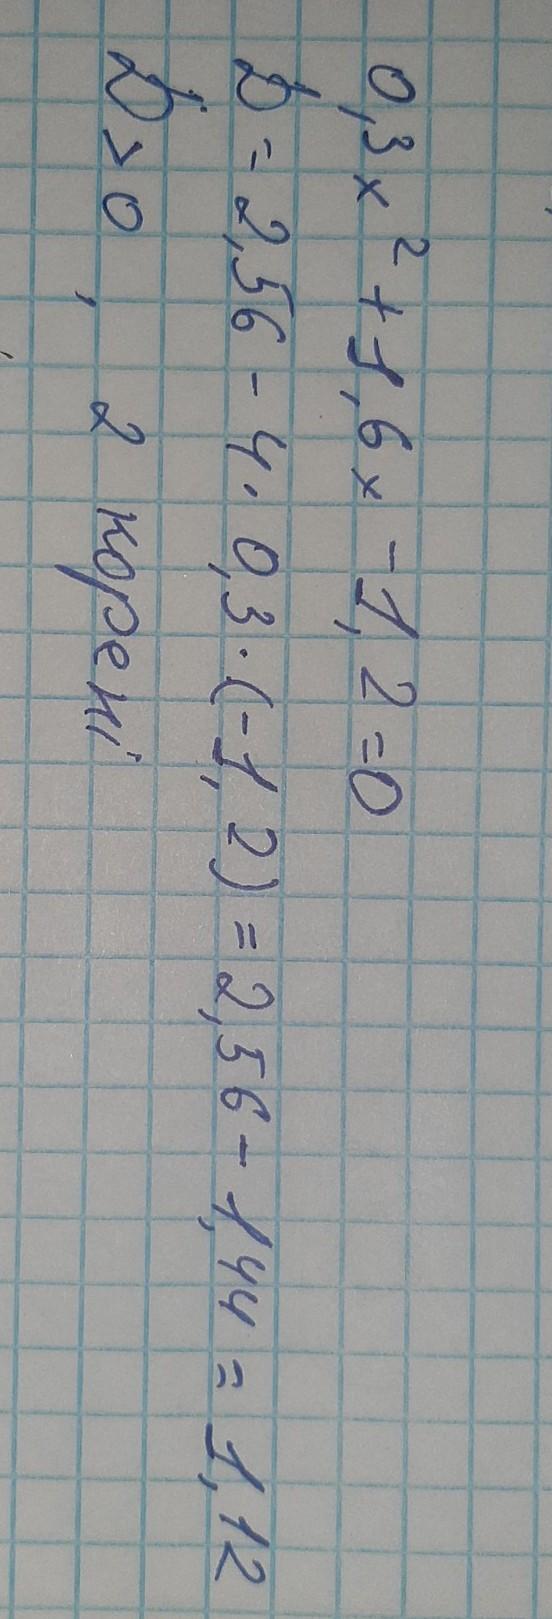 0,3x² + 1,6x - 1,2 = 0
D = 2,56 - 4 · 0,3 · (-1,2) = 2,56 - 1,44 = 1,12
D > 0, 2 корені